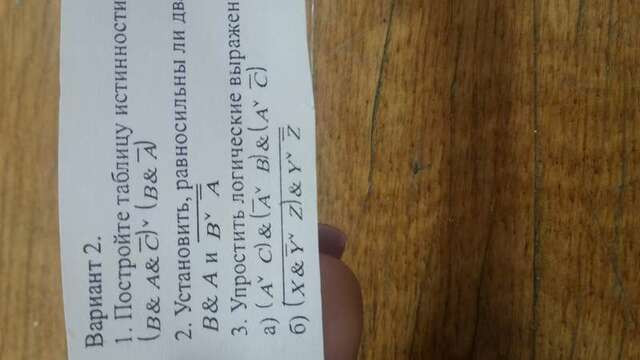 Вариант 2.
1. Постройте таблицу истинности
(B & A & C̅) ˅ (B & A̅)
2. Установить, равносильны ли дв
B & A и B ˅ A̅̅
3. Упростить логические выражен
а) (A ˅ C) & (A̅ ˅ B) & (A ˅ C̅)
б) (X & Y̅ ˅ Z) & Y ˅ Z̅